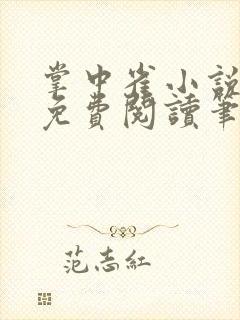 掌中雀小說
免費閱讀筆
范志紅